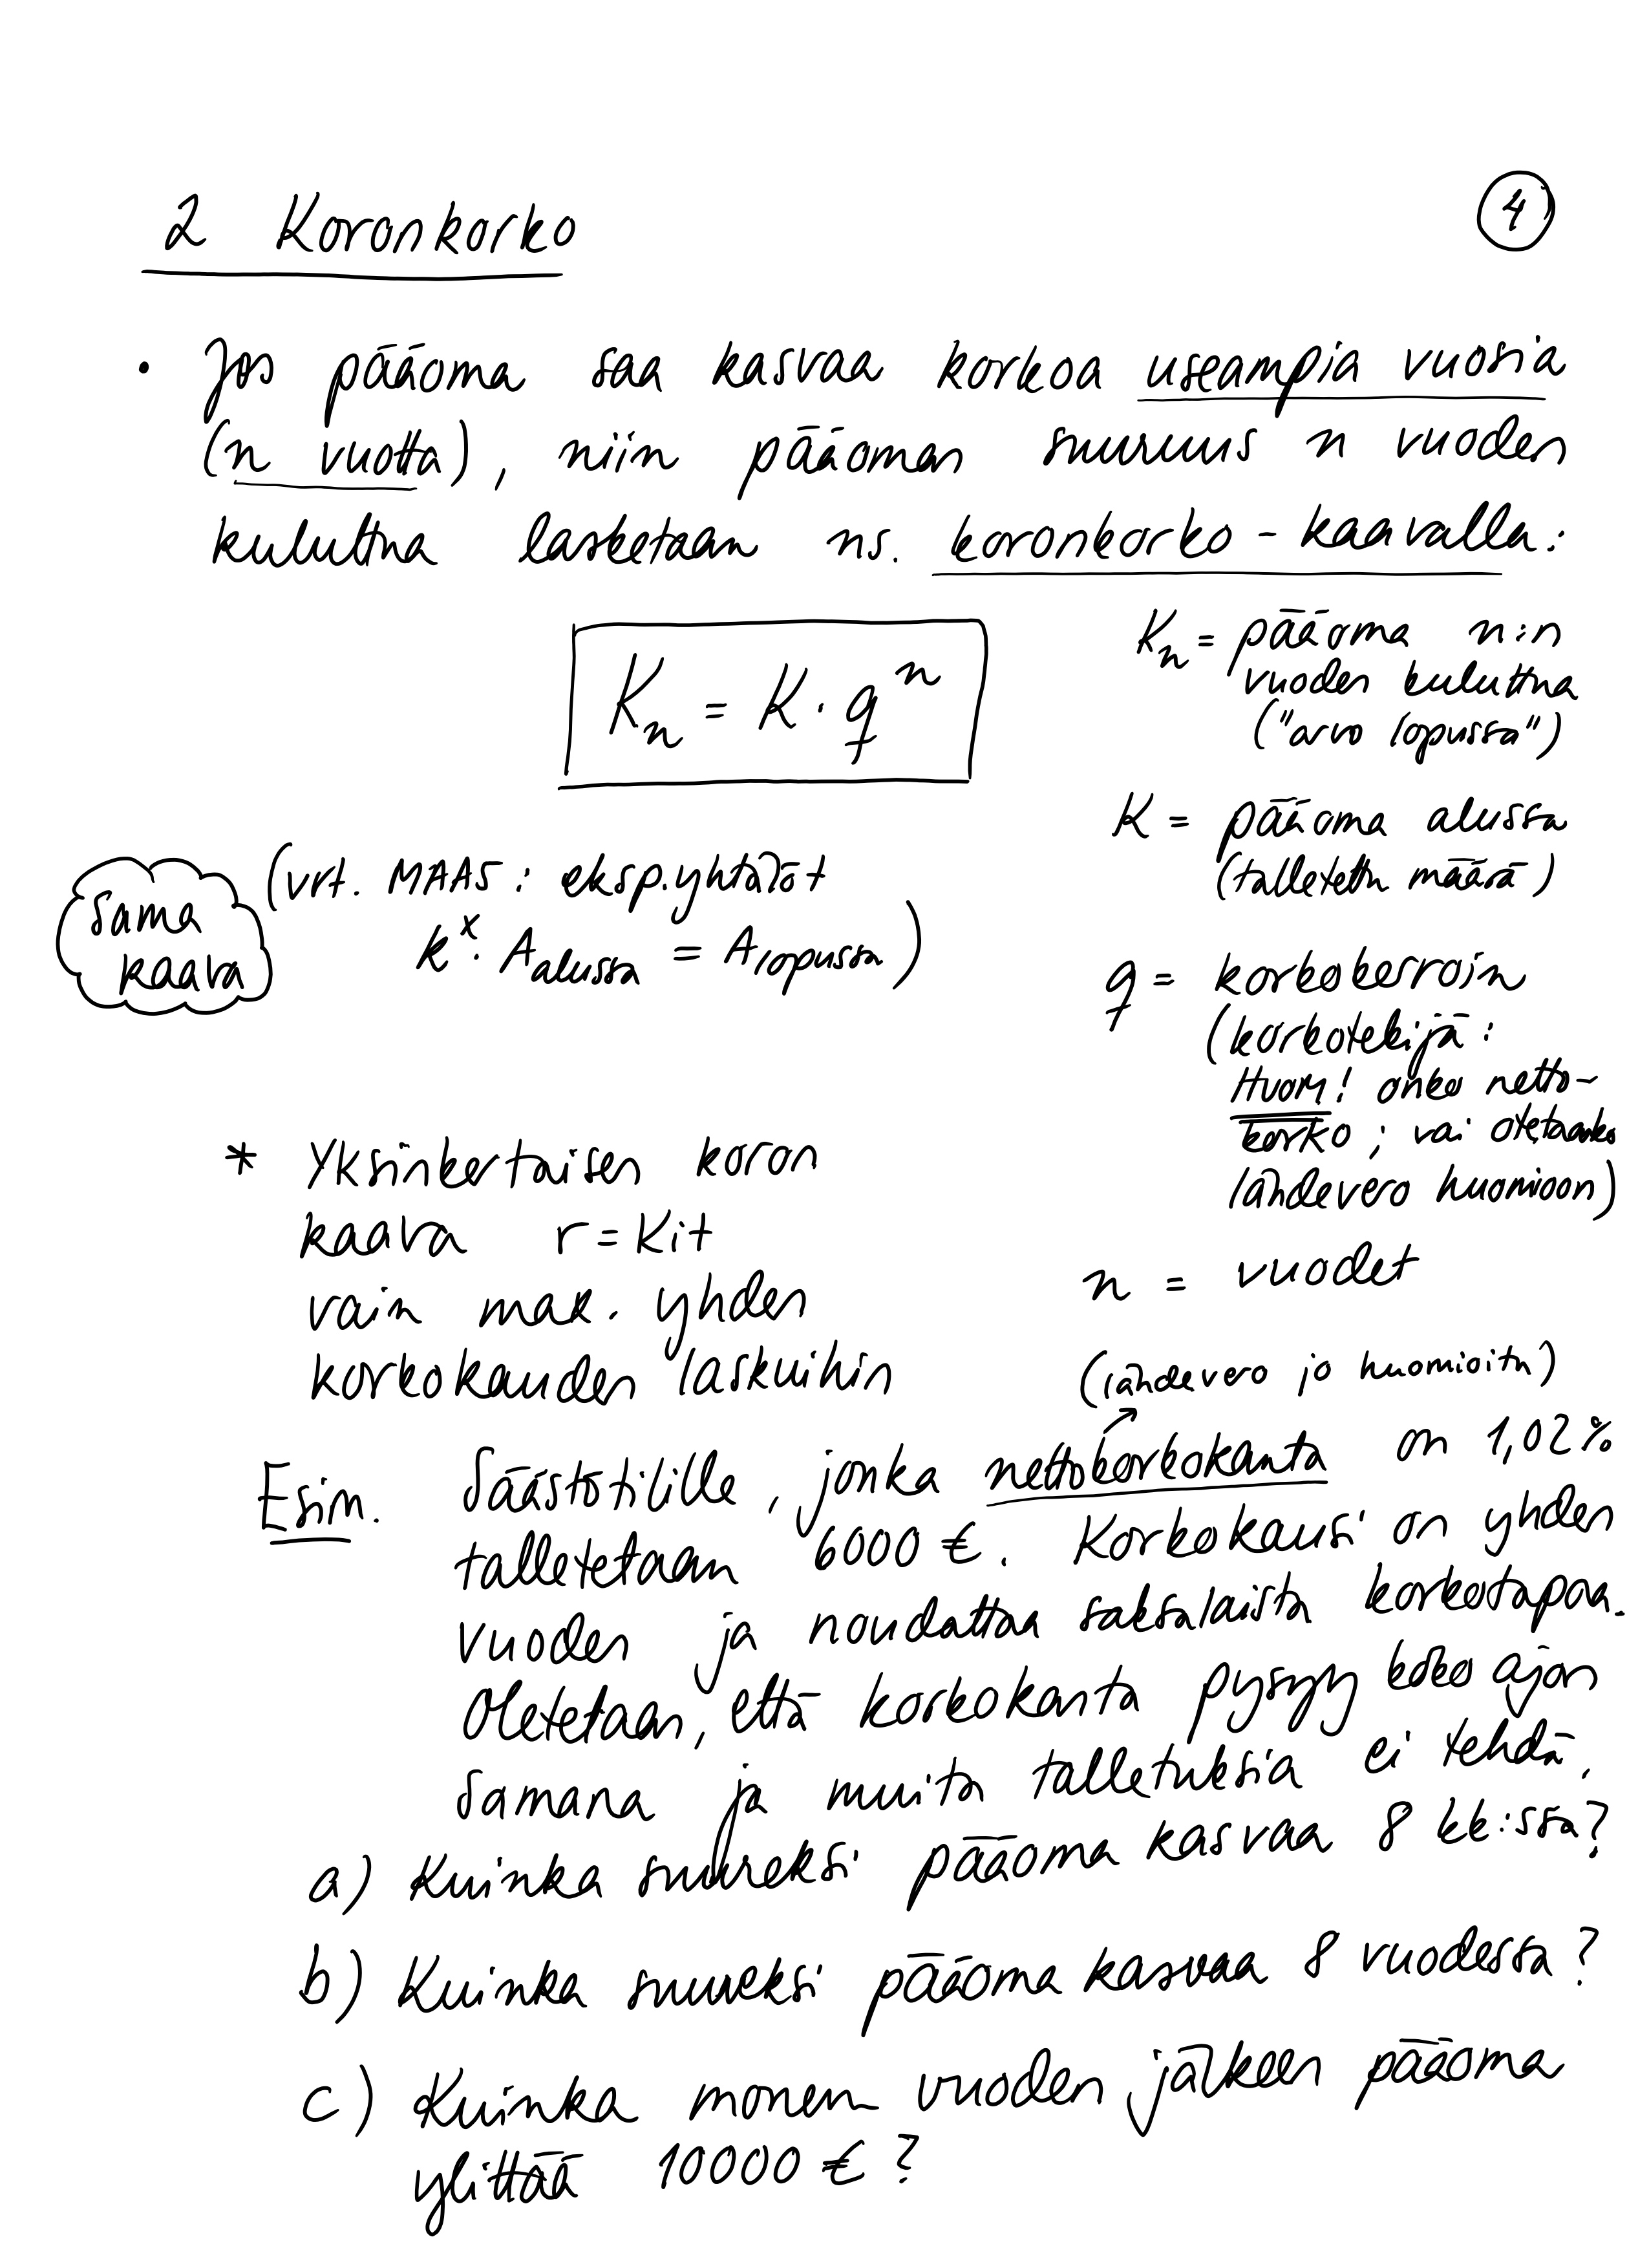 2 Koronkorko
4
• Jos pääoma saa kasvaa korkoa useampia vuosia
(n vuotta), niin pääoman suuruus n vuoden
kuluttua lasketaan ns. koronkorko-kaavalla:
Kₙ = K · qⁿ
Kₙ = pääoma n:n
vuoden kuluttua
("arvo lopussa")
K = pääoma alussa
(talletettu määrä)
q = korkokerroin
(korkotekijä:
HUOM! onko netto-
korko; vai otetaanko
lähdevero huomioon)
n = vuodet
sama
kaava
(vrt. MAA5: eksp.yhtälöt
kˣ · Aalussa = Alopussa)
* Yksinkertaisen koron
kaava r = Kit
vain max. yhden
korkokauden laskuihin
(lähdevero jo huomioitu)
Esim. Säästötilille, jonka nettokorkokanta on 1,02%
talletetaan 6000 €. Korkokausi on yhden
vuoden ja noudattaa saksalaista korkotapaa.
Oletetaan, että korkokanta pysyy koko ajan
samana ja muita talletuksia ei tehdä.
a) Kuinka suureksi pääoma kasvaa 8 kk:ssa?
b) Kuinka suureksi pääoma kasvaa 8 vuodessa?
c) Kuinka monen vuoden jälkeen pääoma
ylittää 10000 €?